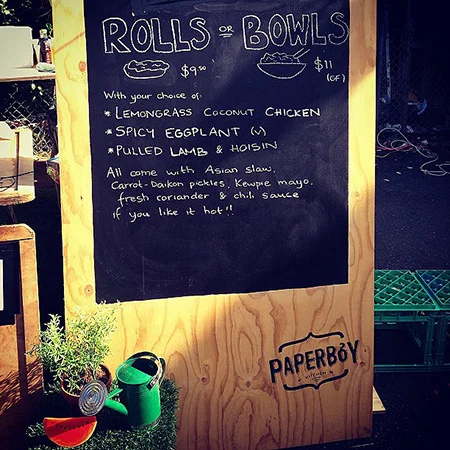 ROLLS OR BOWLS
$9.50 $11
(GF)
With your choice of:
* LEMONGRASS COCONUT CHICKEN
* SPICY EGGPLANT (V)
* PULLED LAMB & HOISIN
All come with Asian slaw,
Carrot-Daikon pickles, Kewpie mayo,
fresh coriander & chili sauce
if you like it hot!!
PAPERBOY
KITCHEN